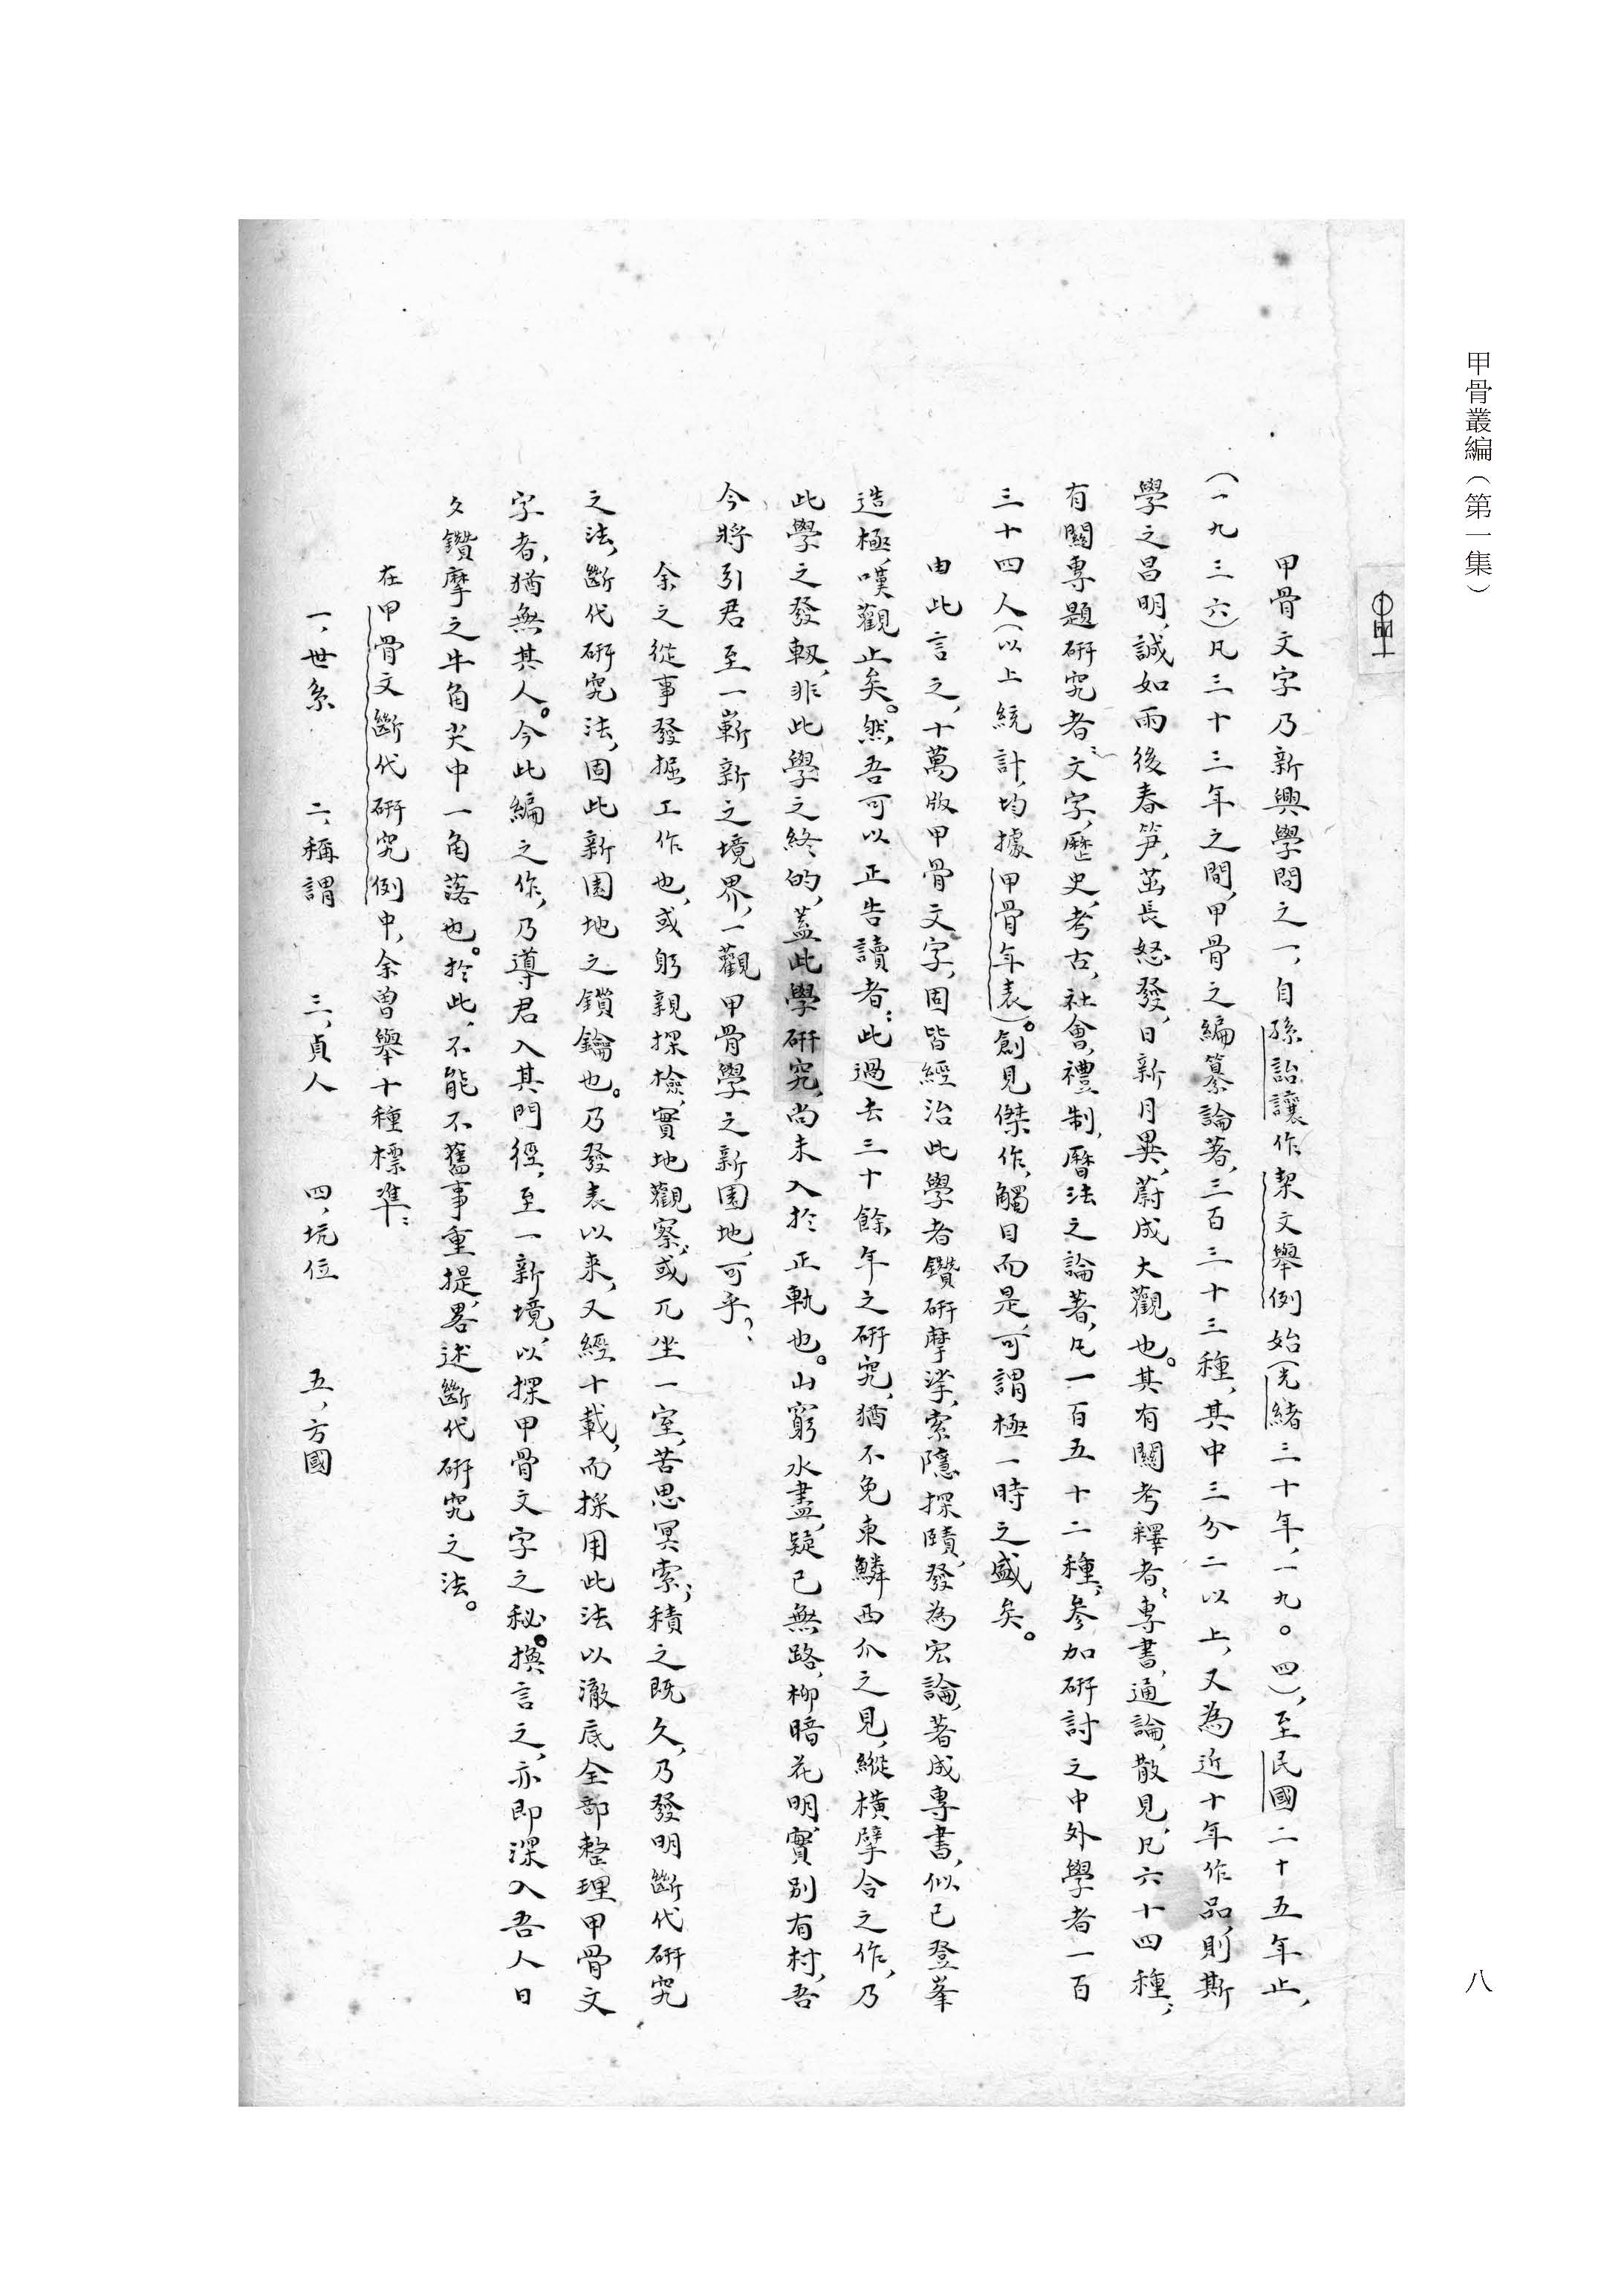 甲骨叢編（第一集）
八
甲骨文字乃新興學問之一，自孫詒讓作契文舉例始（光緒三十年，一九〇四），至民國二十五年止，
（一九三六）凡三十三年之間，甲骨之編纂論著，三百三十三種，其中三分二以上，又為近十年作品，則斯
學之昌明，誠如雨後春笋，茁長怒發，日新月異，蔚成大觀也。其有關考釋者：專書，通論，散見，凡六十四種；
有關專題研究者：文字，歷史，考古，社會，禮制，曆法之論著，凡一百五十二種；參加研討之中外學者一百
三十四人（以上統計，均據甲骨年表）。創見傑作，觸目而是，可謂極一時之盛矣。
由此言之，十萬版甲骨文字，固皆經治此學者鑽研摩挲，索隱探賾，發為宏論，著成專書，似已登峯
造極，嘆觀止矣。然吾可以正告讀者：此過去三十餘年之研究，猶不免東鱗西爪之見，縱橫擘合之作，乃
此學之發軔，非此學之終的，蓋此學研究，尚未入於正軌也。山窮水盡，疑已無路，柳暗花明，實别有村，吾
今將引君至一嶄新之境界，一觀甲骨學之新園地，可乎？
余之從事發掘工作也，或躬親探檢，實地觀察，或兀坐一室，苦思冥索；積之既久，乃發明斷代研究
之法，斷代研究法，固此新園地之鑰鑰也。乃發表以来，又經十載，而採用此法以澈底全部整理甲骨文
字者，猶無其人。今此編之作，乃導君入其門徑，至一新境，以探甲骨文字之秘。換言之，亦即深入吾人日
夕鑽摩之牛角尖中一角落也。於此，不能不舊事重提，畧述斷代研究之法。
在甲骨文斷代研究例中，余曾舉十種標準：
一，世系　二，稱謂　三，貞人　四，坑位　五，方國